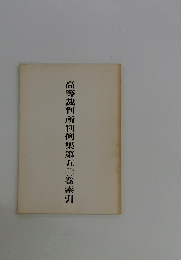 高等裁判所判例集第五三巻索引